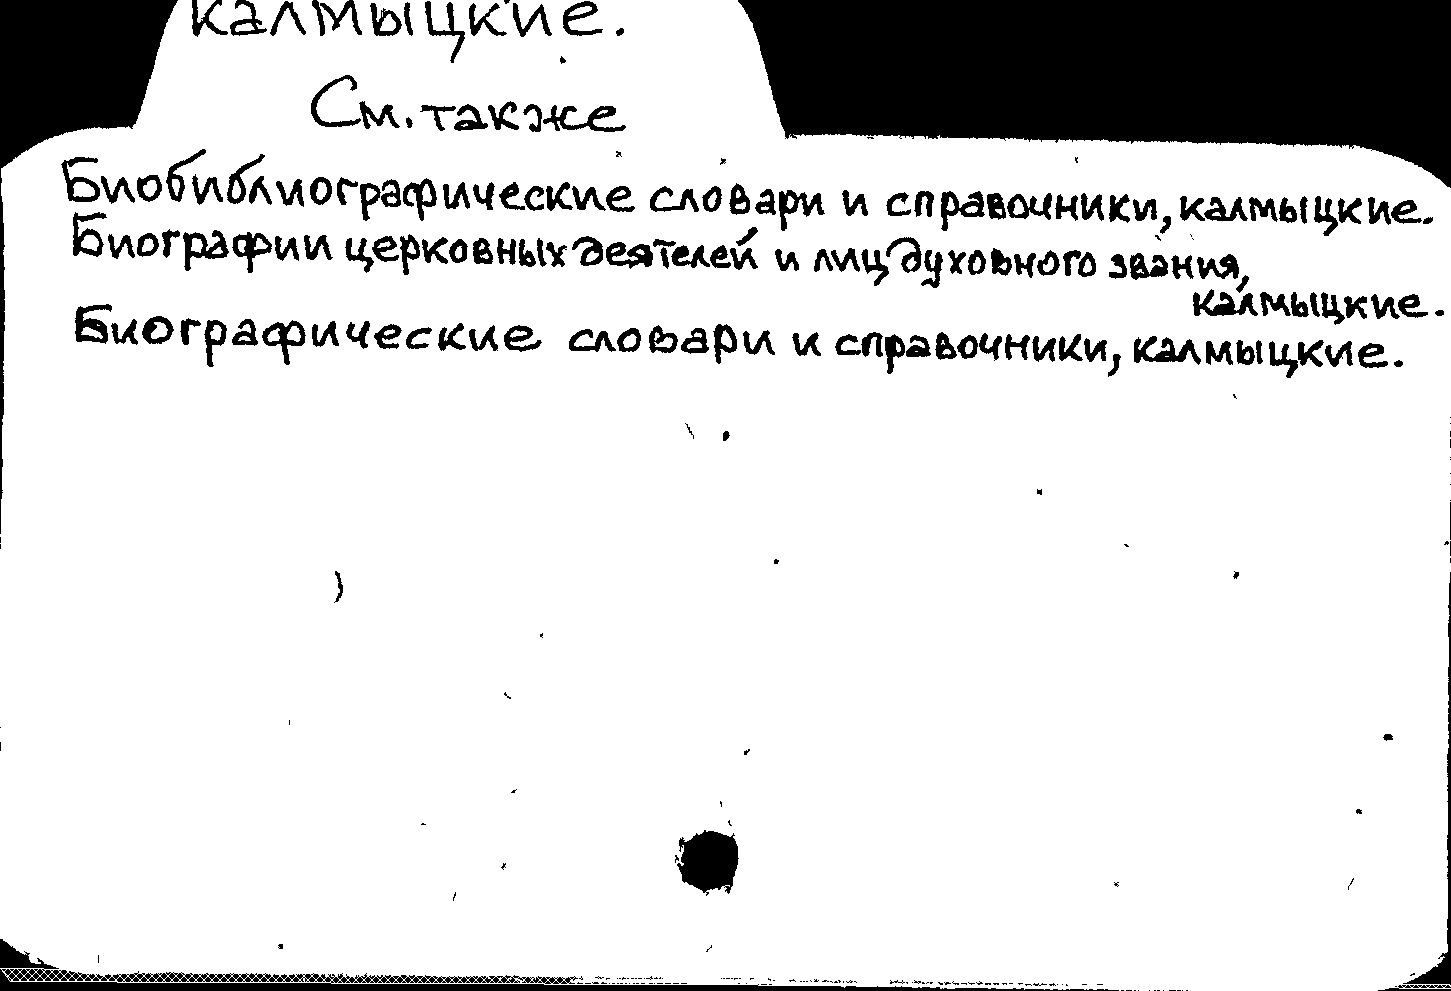 калмыцкие.
См. также
Биобиблиографические словари и справочники, калмыцкие.
Биографии церковных деятелей и лиц духовного звания,
калмыцкие.
Биографические словари и справочники, калмыцкие.